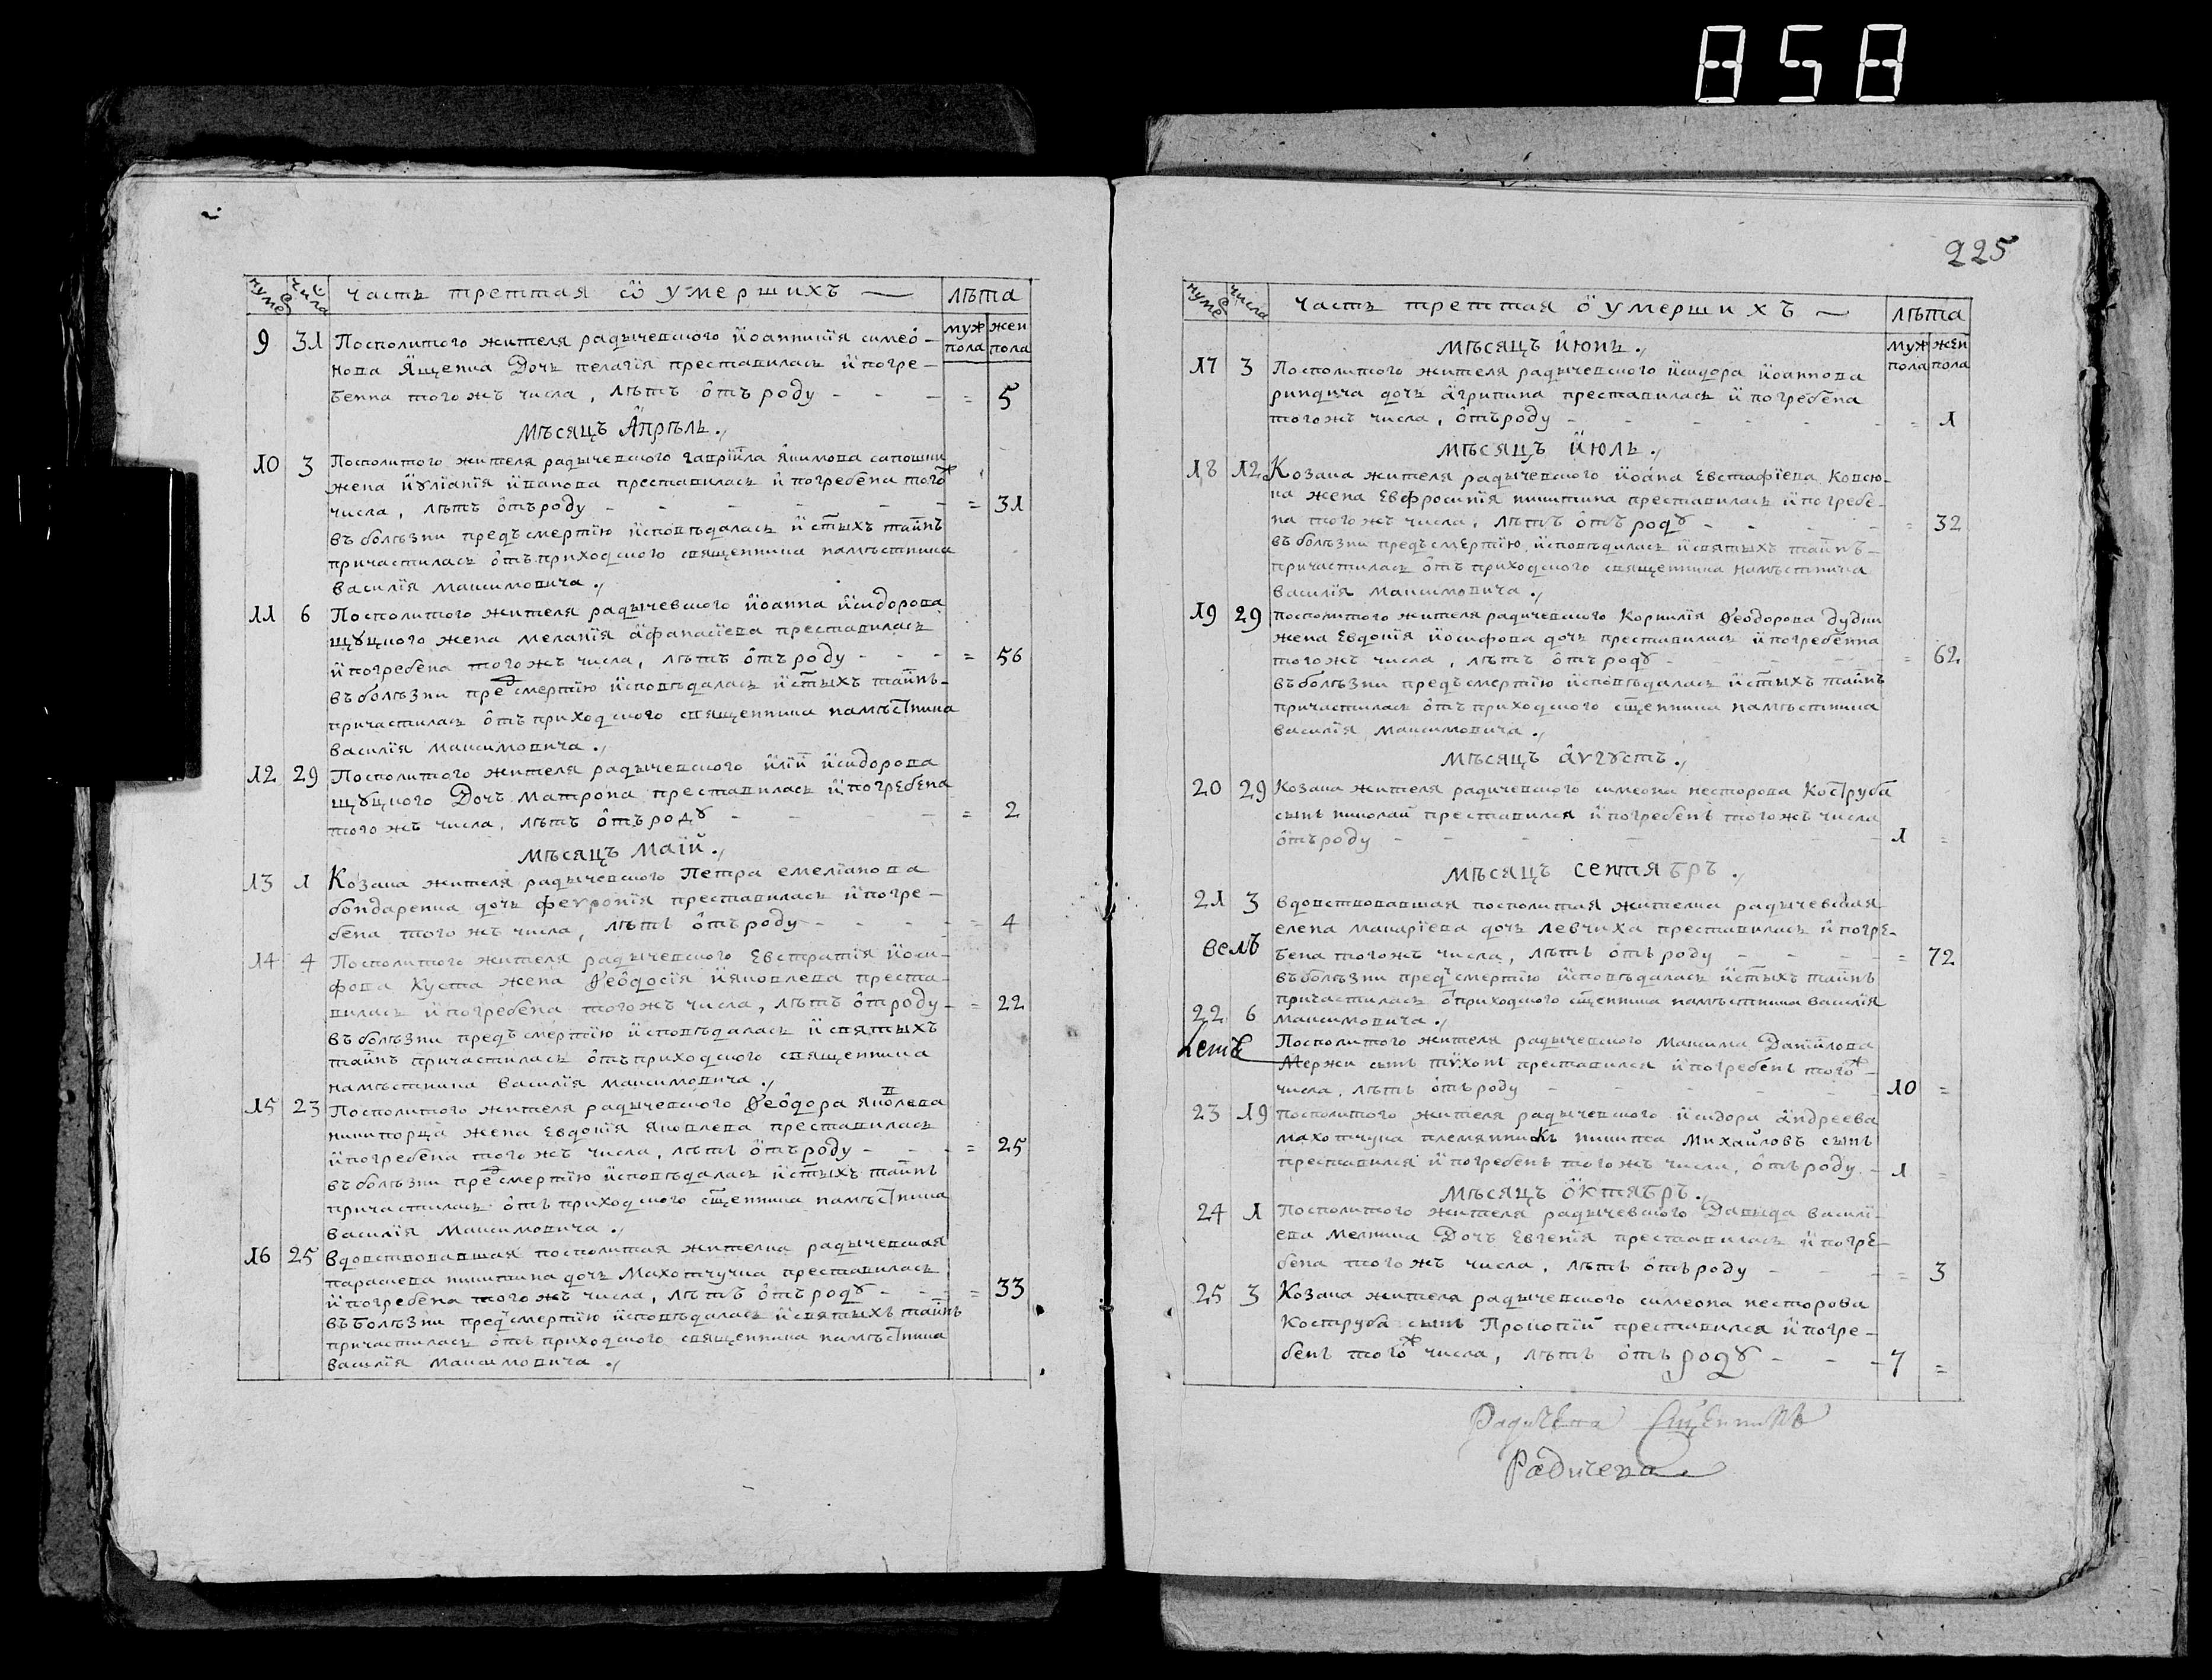 858
нумеръ числа часть треттая ѡ умершихъ — лѣта
муж пола жен пола
9 31 Посполитого жителя радычевского іоанникія симео-
нова Ященка Дочь пелагія преставилась и погре-
бенна того жъ числа, лѣтъ ѿтъ роду - - - = 5
Мѣсяцъ Апрѣль.,
10 3 Посполитого жителя радычевского гавріила якимова
жена іуліанія иванова преставилась и погребена того ж
числа, лѣтъ отъ роду - - - = 31
въ болѣзни предъ смертію исповѣдалась и стыхъ таинъ
причастилась отъ приходского священника намѣстника
василія максимовича.,
11 6 Посполитого жителя радычевского іоанна исидорова
щуцкого жена меланія афанасіева преставилась
и погребена того жъ числа, лѣтъ отъ роду - - - = 56
въ болѣзни пред смертію исповѣдалась и стыхъ таинъ-
причастилась отъ приходского священника намѣстника
василія максимовича.,
12 29 Посполитого жителя радычевского иліи исидорова
щуцкого Дочъ Матрона преставилась и погребена
того жъ числа, лѣтъ отъ роду - - - = 2
Мѣсяцъ Маій.,
13 1 Козака жителя радычевского Петра емеліанова
бондаренка дочь феуронія преставилась и погре-
бена того жъ числа, лѣтъ отъ роду - - - = 4
14 4 Посполитого жителя радычевского Евстратія іоси-
фова Куста жена Ѳеодосія ияковлева преста-
вилась и погребена того жъ числа, лѣтъ от роду - = 22
въ болѣзни предъ смертію исповѣдалась и святыхъ
таинъ причастилась отъ приходского священника
намѣстника василія максимовича.,
15 23 Посполитого жителя радычевского Ѳеодора яковлева
никиторца жена Евдокія яковлева преставилась
и погребена того жъ числа, лѣтъ отъ роду - - - = 25
въ болѣзни пред смертію исповѣдалась и стыхъ таинъ
причастилась отъ приходского сщенника намѣстника
василія Максимовича.,
16 25 вдовствовавшая посполитая жителка радычевская
параскева никитина дочь Махотчучка преставилась
и погребена того жъ числа, лѣтъ отъ роду - - = 33
въ болѣзни предъ смертію исповѣдалась и святыхъ таинъ
причастилась отъ приходского священника намѣстника
василія максимовича.,
225
нумеръ числа часть треттая о умершихъ — лѣта
муж пола жен пола
Мѣсяцъ июнь.,
17 3 Посполитого жителя радычевского исидора іоаннова
риндича дочь агрипина преставилась и погребена
того жъ числа, отъ роду - - - = 1
Мѣсяцъ июль.,
18 12 Козака жителя радычевского іоана Евстафіева Ковсю-
ка жена Евфросинія никитина преставилась и погребе-
на того жъ числа, лѣтъ отъ роду - - - = 32
въ болѣзни предъ смертію исповѣдалась и святыхъ таинъ-
причастилась отъ приходского священника намѣстника
василія максимовича.,
19 29 посполитого жителя радичевского Корнилія Ѳеодорова дудки
жена Евдокія іосифова дочь преставилась и погребенна
того жъ числа, лѣтъ отъ роду - - - = 62
въ болѣзни предъ смертію исповѣдалась и стыхъ таинъ
причастилась отъ приходского сщенника намѣстника
василія максимовича.,
Мѣсяцъ августъ.,
20 29 Козака жителя радичевского симеона несторова Коструба
сынъ николай преставился и погребенъ того жъ числа
отъ роду - - - 1 =
Мѣсяцъ септябръ.,
21 3 вдовствовавшая посполитая жителка радычевская
елена макаріева дочь левчиха преставилась и погре-
бена того жъ числа, лѣтъ отъ роду - - - = 72
въ болѣзни предъ смертію исповѣдалась и стыхъ таинъ
причастилась от приходского сщенника намѣстника василія
22 6 максимовича.,
Посполитого жителя радычевского Максима Даніилова
Мержи сынъ тихонъ преставился и погребенъ того ж-
числа, лѣтъ отъ роду - - - 10 =
23 19 посполитого жителя радычевского исидора андреева
махотчука племянникъ никита михайловъ сынъ
преставился и погребенъ того жъ числа, отъ роду. - 1 =
Мѣсяцъ октябръ.,
24 1 Посполитого жителя радычевского Давыда василі-
ева мелника Дочъ Евгенія преставилась и погре-
бена того жъ числа, лѣтъ отъ роду - - - = 3
25 3 Козака жителя радычевского симеона несторова
Коструба сынъ Прокопій преставился и погре-
бенъ того ж числа, лѣтъ отъ роду - - - 7 =
Радичева